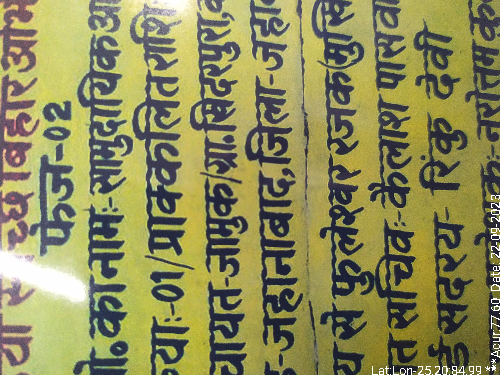 स्वच्छ बिहार अभि
फेज-02
यो० का नामः-सामुदायिक
ख्याः-01/प्राक्कलित राशि
चायत-जामुक/ग्रा०खिदरपुरा,
जहानाबाद,जिला-जहा
से फुलेश्वर रजक(मुखि
सचिवः-कैलाश पासवा
सदस्य- रिंकु देवी
नरोतम
Lat Lon-25.20 84.99 **Acur:77.60 Date: 22-09-2023